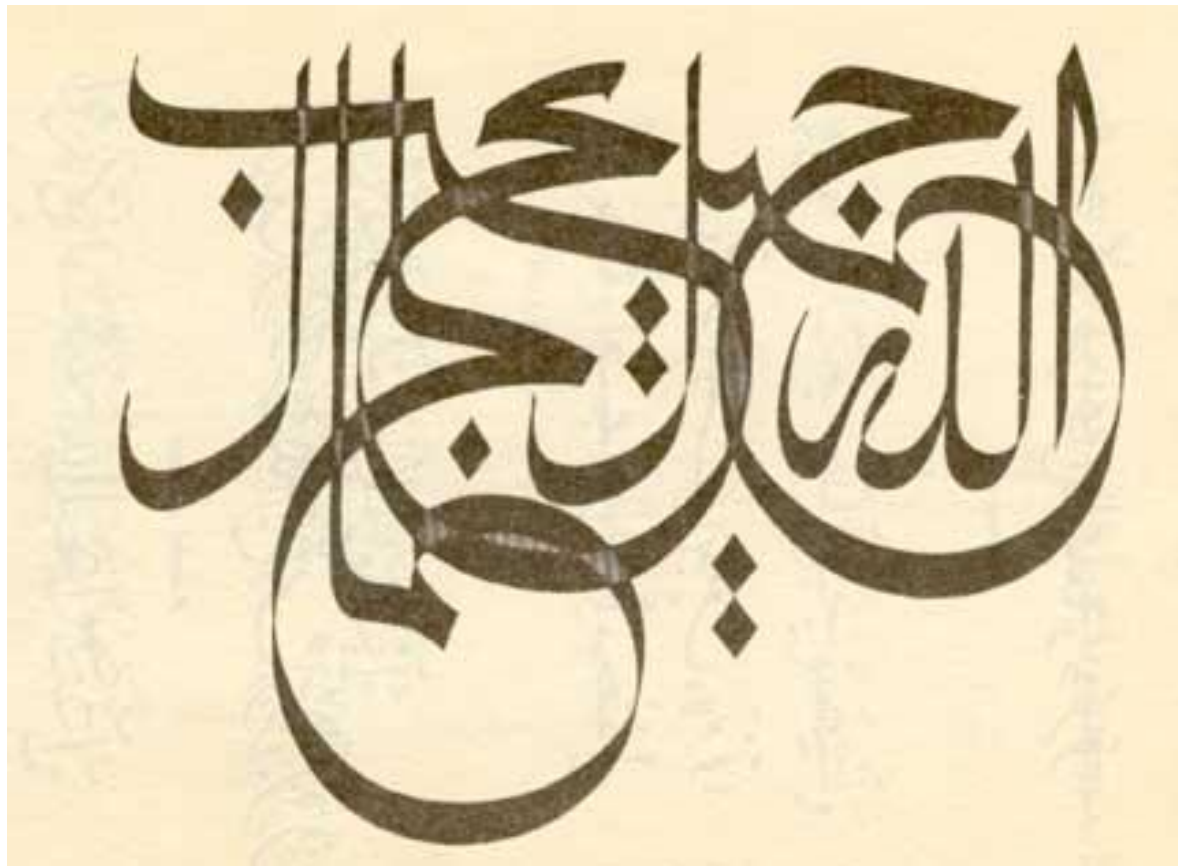 الله جميل يحب الجمال